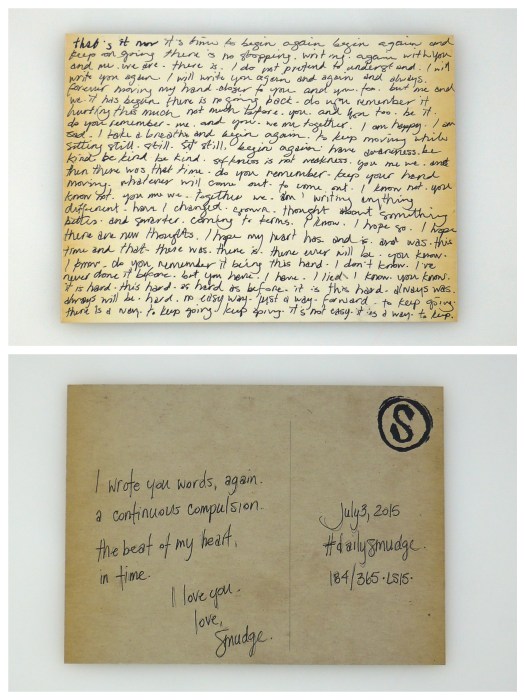 that's it now it's time to begin again begin again and
keep on going there is no stopping. writing. again with you
and me. we are. there is. I do not pretend to understand. I will
write you again I will write you again and again and always.
forever moving my hand closer to you and you. too. but me and
we. it has begun. there is no going back. do you remember it
hurting this much. not much before. you and you too. be it.
do you remember. me. and you. we are together. I am happy. I am
sad. I take a breath and begin again. to keep moving while
sitting still. still. sit still. begin again. have awareness. be
kind. be kind be kind. softness is not weakness. you me we. and
then there was that time. do you remember. keep your hand
moving. whatever will come out. to come out. I know not. you
know not. you me we. together we. am I writing anything
different. have I changed. grown. thought about something
better. and smarter. coming to terms. I know. I hope so. I hope
there are new thoughts. I hope my heart has and is. and was. this
time and that. there was. there is. there ever will be. you know.
I know. do you remember it being this hard. I don't know. I've
never done it before. but you have. I have. I lied. I know. you know.
it is hard. this hard. as hard as before. it is this hard. always was.
always will be. hard. no easy way. just a way. forward. to keep going.
there is a way. to keep going. keep going. it's not easy. it is a way. to keep.
S
I wrote you words, again.
a continuous compulsion.
the beat of my heart,
in time.
I love you.
love,
Smudge.
July 3, 2015
#dailysmudge.
184/365·LS15·